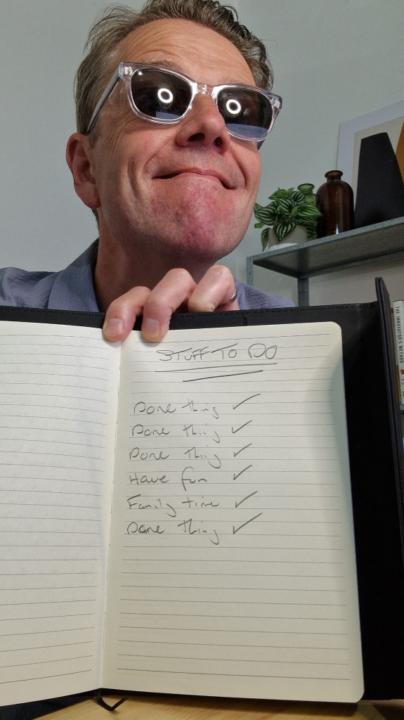 STUFF TO DO
Done thing ✓
Done thing ✓
Done thing ✓
Have fun ✓
Family time ✓
Done thing ✓